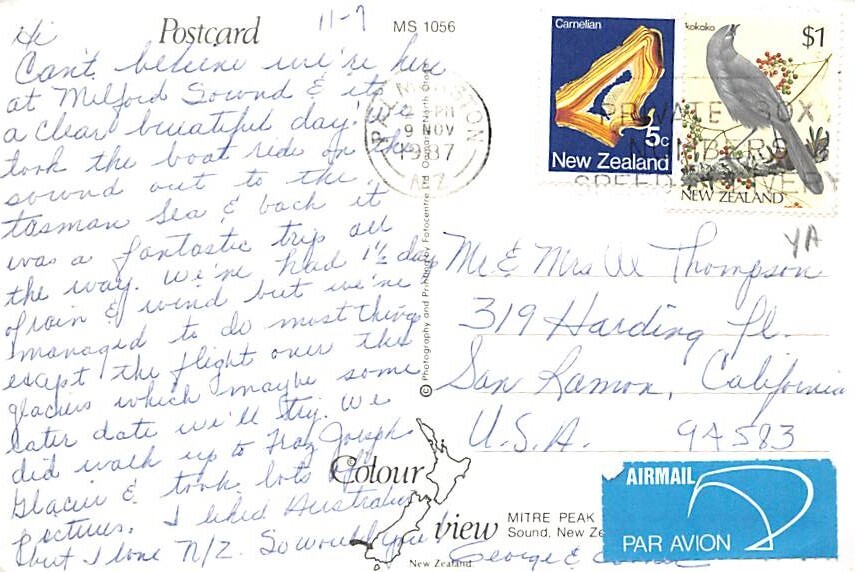 11-7
Postcard
MS 1056
Hi
Can't believe we're here
at Milford Sound & its
a clear buautiful day. We
took the boat ride on the
sound out to the
tasman Sea & back it
was a fantastic trip all
the way. We've had 1½ day
of rain & wind but we've
managed to do most things
except the flight over the
glaciers which maybe some
later date we'll try. We
did walk up to Franz Joseph
Glacier & took lots of
pictures. I liked Australia
but I love N/Z. So would you
George &
Carnelian
5c
New Zealand
kokako
$1
NEW ZEALAND
2 PM
9 NOV
1987
N.Z.
PRIVATE BOX
NUMBERS
SPEED DELIVERY
YA
Mr & Mrs Al Thompson
319 Harding Pl.
San Ramon, California
U.S.A. 94583
© Photography and Printing by Fotocentre Ltd Oamaru North Otago
Colour
view
New Zealand
MITRE PEAK
Sound, New Ze
AIRMAIL
PAR AVION